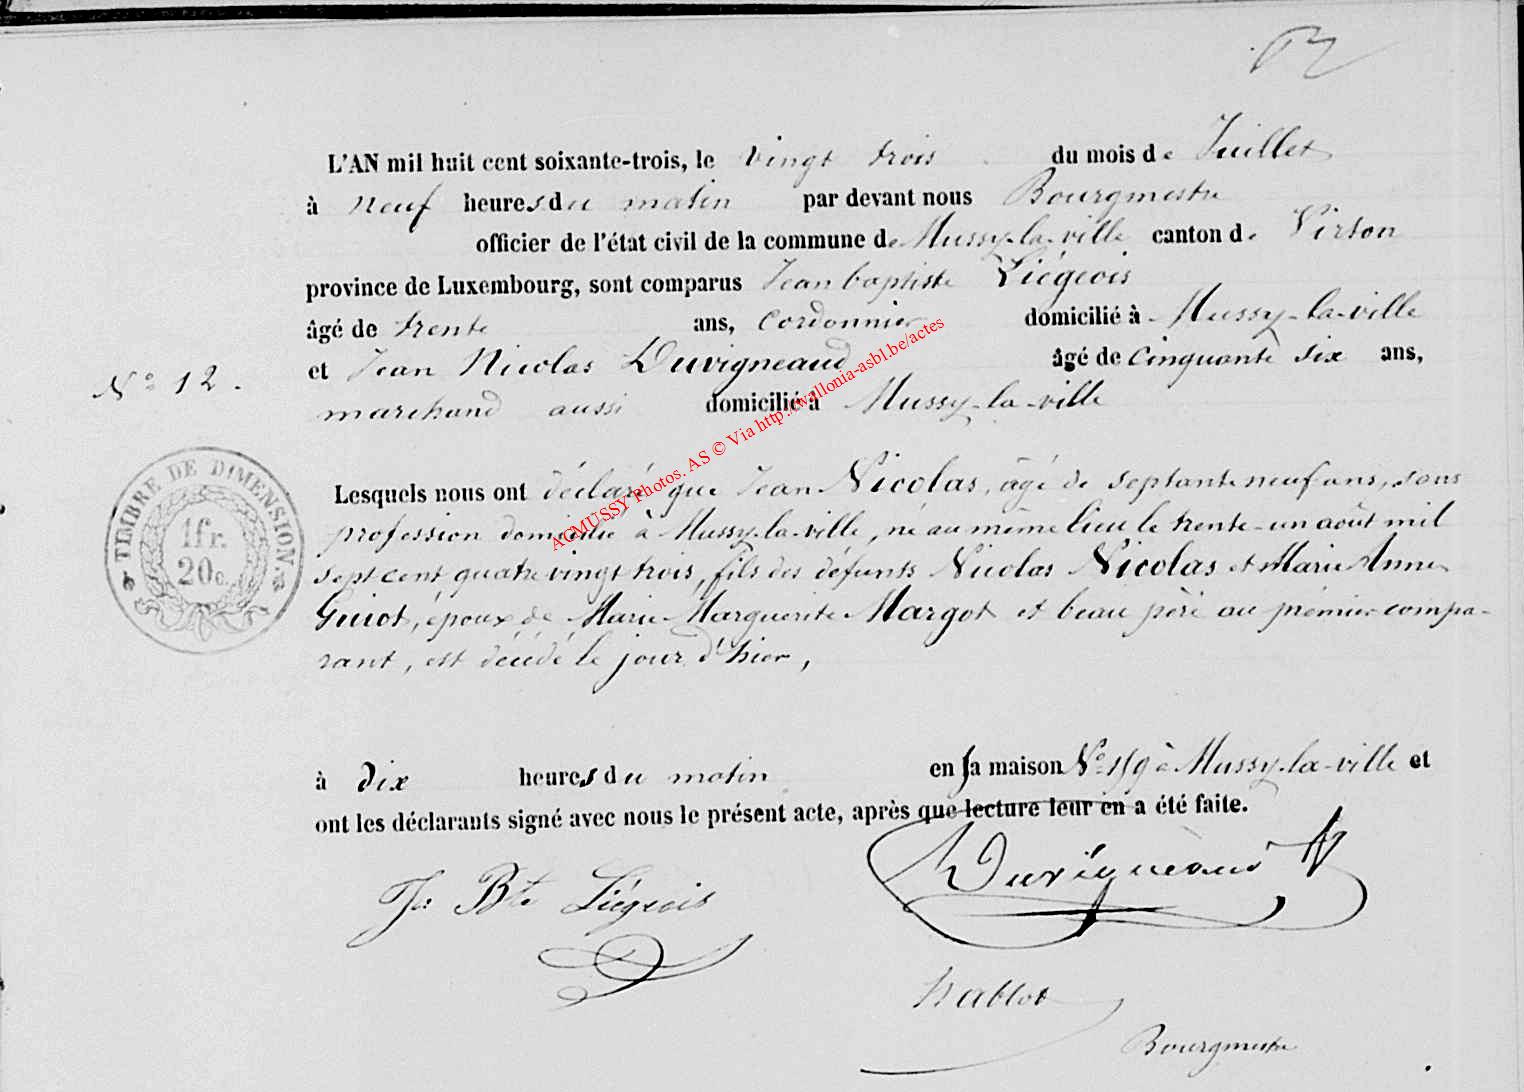 L'AN mil huit cent soixante-trois, le vingt trois du mois de Juillet
à neuf heures du matin par devant nous Bourgmestre
officier de l'état civil de la commune de Mussy-la-ville canton de Virton
province de Luxembourg, sont comparus Jean baptiste Liégeois
âgé de trente ans, cordonnier domicilié à Mussy-la-ville
et Jean Nicolas Duvigneaud âgé de cinquante six ans,
N° 12.
marchand aussi domicilié à Mussy-la-ville
TIMBRE DE DIMENSION.
1 fr.
20 c.
Lesquels nous ont déclaré que Jean Nicolas, âgé de septante neuf ans, sans
profession domicilié à Mussy-la-ville, né au même lieu le trente-un août mil
sept cent quatre vingt trois, fils des défunts Nicolas Nicolas et Marie Anne
Guiot, époux de Marie Marguerite Margot et beau père au premier compa-
rant, est décédé le jour d'hier,
à dix heures du matin en sa maison N° 159 à Mussy-la-ville et
ont les déclarants signé avec nous le présent acte, après que lecture leur en a été faite.
Jn Bte Liégeois
Duvigneaud
Hablot
Bourgmestre
ACMUSSY Photos. AS © Via http://wallonia-asbl.be/actes